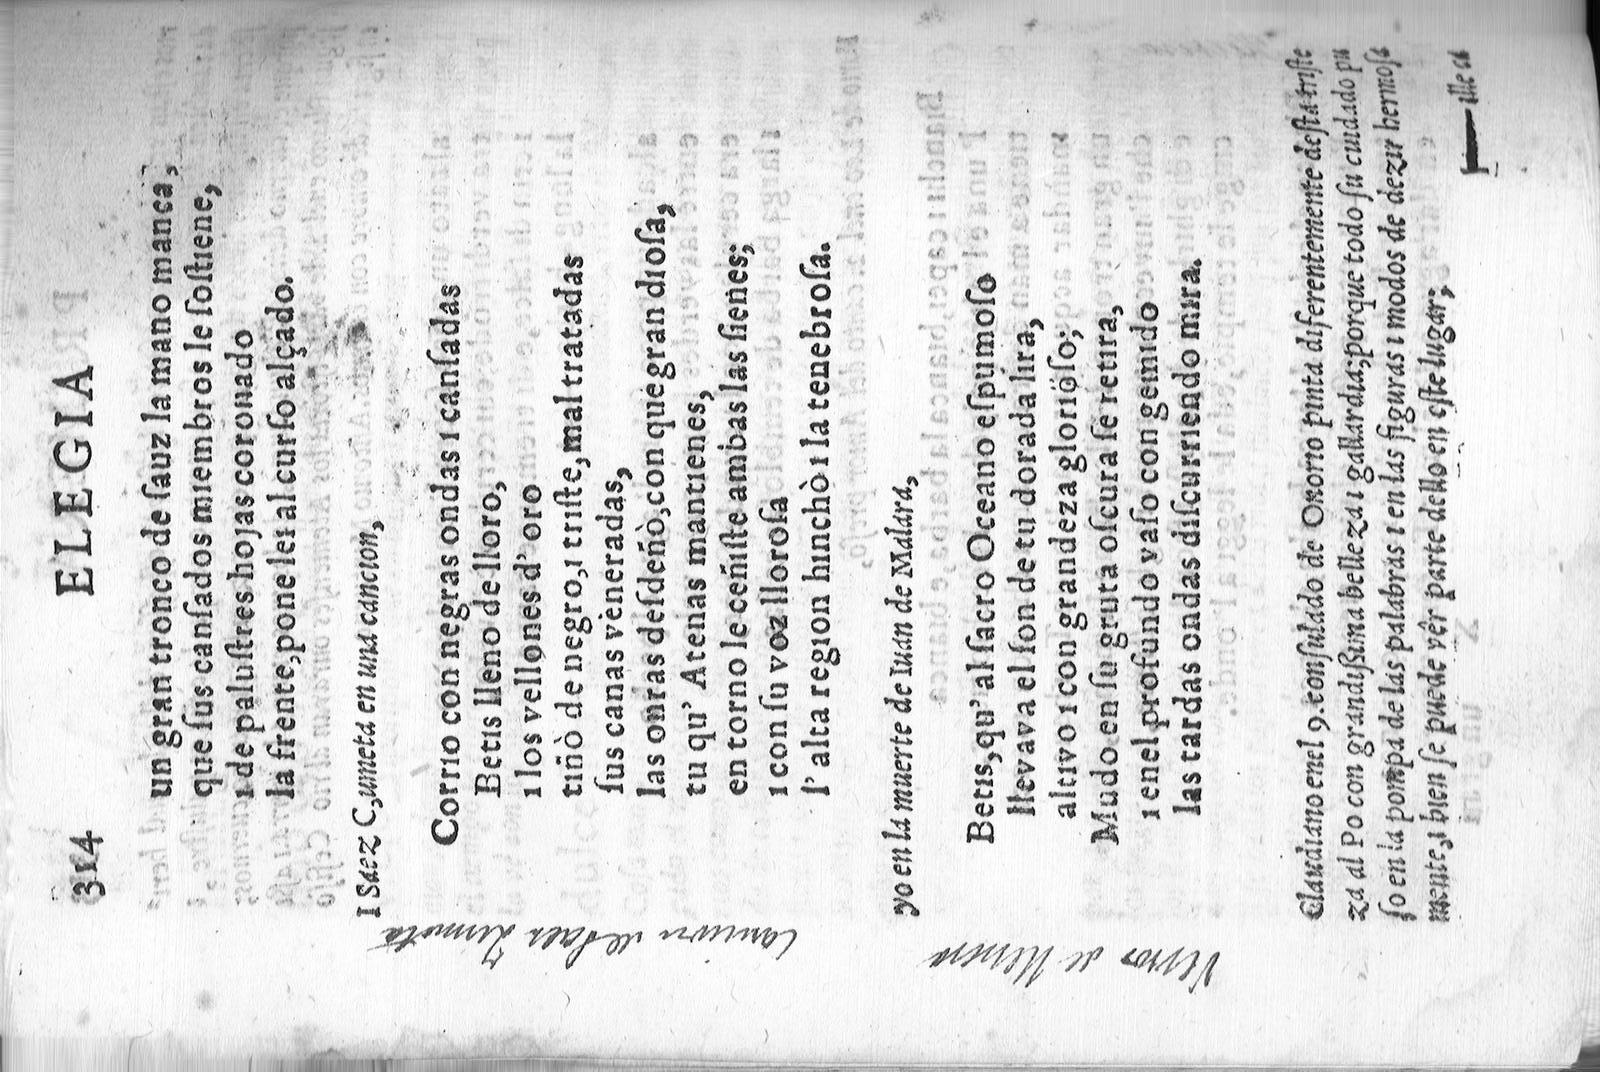 314 ELEGIA
un gran tronco de ſauz la mano manca,
que ſus canſados miembros le ſoſtiene,
i de paluſtres hojas coronado
la frente, pone lei al curſo alçado.
I Saez Çumeta en una cancion,
Corrio con negras ondas i canſadas
Betis lleno de lloro,
i los vellones d' oro
tiñò de negro, i triſte, mal tratadas
ſus canas veneradas,
las onras deſdeñò, con que gran dioſa,
tu qu' Atenas mantienes,
en torno le ceñiſte ambas las ſienes;
i con ſu voz lloroſa
l' alta region hinchò i la tenebroſa.
Cancion de Saes Zumeta
yo en la muerte de Iuan de Malara,
Betis, qu' al ſacro Oceano eſpumoſo
llevava el ſon de tu dorada lira,
altivo i con grandeza glorïoſo;
Mudo en ſu gruta oſcura ſe retira,
i enel profundo vaſo con gemido
las tardas ondas diſcurriendo mira.
Versos de Herrera
Claudiano enel 9. conſulado de Onorio pinta diferentemente deſta triſte
za al Po con grandiſsima belleza i gallardia; porque todo ſu cuidado pu
ſo en la pompa de las palabras i en las figuras i modos de dezir hermoſa
mente, i bien ſe puede vêr parte dello en eſte lugar;
ille ca